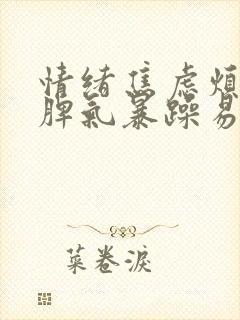 情绪焦虑烦
脾气暴躁易
菜卷淚